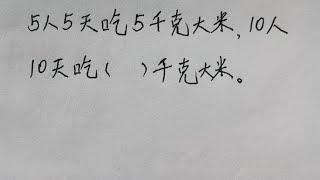 5人5天吃5千克大米,10人
10天吃( )千克大米。